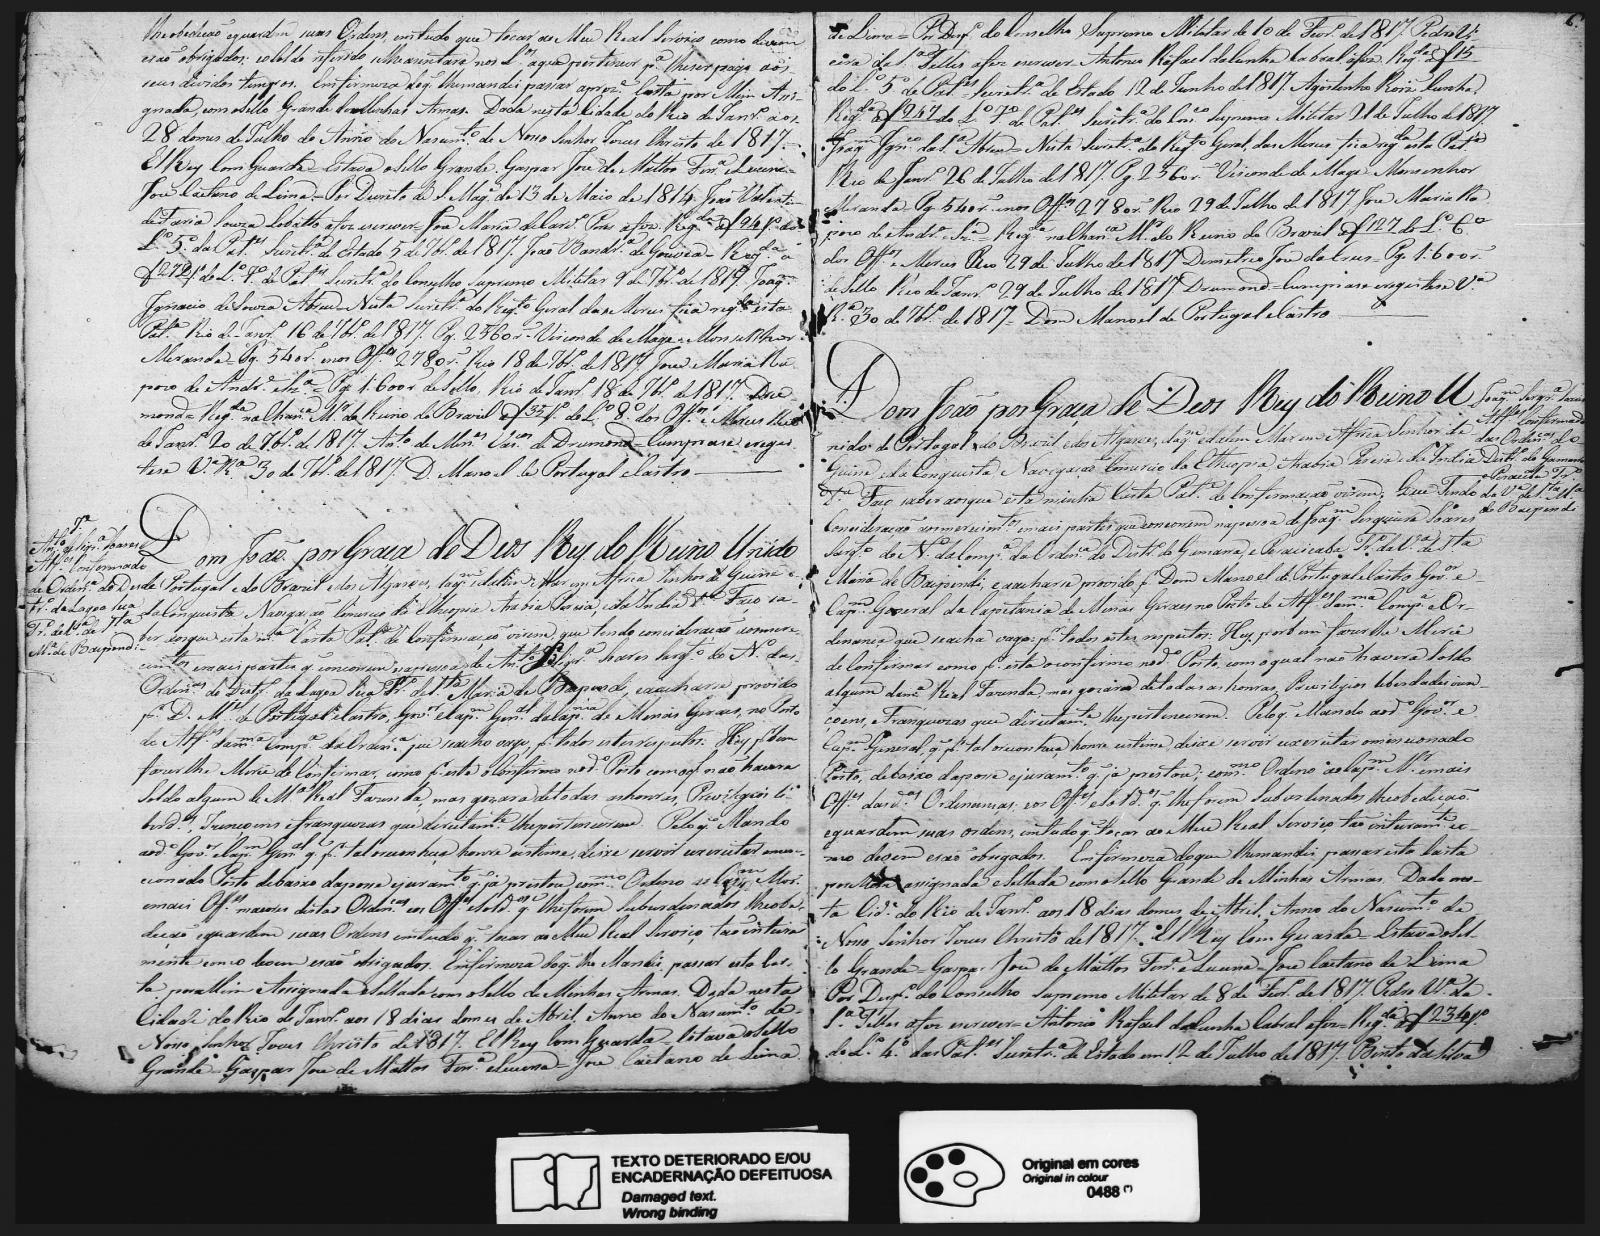 lhe obedeção e guardem suas Ordens, em tudo que tocar ao Meu Real Serviço como devem
e são obrigados: e o soldo referido se lhe assentará nos L.os a que pertencer p.a lhe ser pago aos
seus devidos tempos. Em firmeza do q. lhe mandei passar a prez.e Carta por Mim Assi-
gnada, com o Sello Grande das Minhas Armas. Dada nesta Cidade do Rio de Janr.o aos
28 do mes de Julho do Anno do Nascim.to de Nosso Senhor Jesus Christo de 1817.
El Rey Com Guarda = Estava o Sello Grande. Gaspar Joze de Mattos Ferr.a e Lucena =
Joze Caetano de Lima = Por Decreto de S. Mag.e de 13 de Maio de 1814. João Valenti-
de Faria Souza Lobatto a fez escrever = Joze Maria
L.o 5.o da Pat.es Secret.a de Estado 5 de 7br.o de 1817. João Band.ra de Gouveia = Reg.da a
f 272 do L.o 7.o de Pat.es Secret.a do Conselho Supremo Militar 9 de 7br.o de 1817. Joaq.m
Ignacio de Souza Abreu = Nesta Secret.a do Reg.to Geral das Merces fica reg.da esta
Pat.e Rio de Janr.o 16 de 7br.o de 1817. Pg. 2560 r.s Visconde de Mage = Monsenhor
Miranda = Pg. 540 r.s e aos Off.es 2780 r.s Rio 18 de 7br.o de 1817. Joze Maria Ra
pozo de Andr.e e Sz.a = Pg. 1:600 r de Sello. Rio de Janr.o 18 de 7br.o de 1817. Dru
mond = Reg.da na Chan.ca M.or do Reino do Brazil a f 35 do L.o 8.o dos Off.os e Merces Rio
de Janr.o 20 de 7br.o de 1817. Drumond = Cumprase e regis
tese V.a R.a 30 de 7br.o de 1817. D. Manoel de Portugal e Castro
Ant.o de Siqr.a Soares
Alf.es Confirmado
de Orden.ca do Des
tr.o da Lagoa Sua
Tr.o da V.a de S.ta
M.a de Baependi
Dom João por Graça de Deos Rey do Reino Unido
de Portugal e do Brazil e dos Algarves, daq.m e dalem Mar em Africa Senhor de Guine e
da Conquista Navegação Comercio da Ethiopia Arabia Percia, e da India &.a Faço sa
ber aos que esta m.a Carta Pat.e de Confirmação virem, que tendo consideração aos mere-
cim.tos e mais partes q. concorrem na pessoa de Ant.o de Siqr.a Soares Sarg.to do N.o das
Orden.as do Distr.o da Lagoa Sua Tr.o de S.ta Maria de Baependi, e a acharse provido
p.r D. M.el de Portugal e Castro, Gov.or e Cap.m Gen.al da Cap.nia de Minas Geraes, no Posto
de Alf.es da m.ma Comp.a da Orden.ca que se acha vago, p.r todos estes respeitos: Hey p.r bem
fazer lhe Merce de Confirmar, como p.r esta o Confirmo no d.o Posto com o q.l não haverá
soldo algum de M.a Real Fazenda, mas gozará de todas as honras, Previlegios li-
berd.es, Izençoens e franquezas que direitam.te lhe pertencerem. Pelo q. Mando
ao d.o Gov.or e Cap.m Gen.al q. p.r tal o reconheça honre e estime, e deixe servir e exercitar o men-
cionado Posto debaixo da posse e juram.to q. já prestou com.mo Ordeno ao Cap.m Mor
e mais Off.es maiores destas Orden.as e os Off.es e Sold.os q. lhe forem subordinados lhe obe-
deção e guardem suas Ordens em tudo q. tocar ao Meu Real Serviço, tão inteira
mente como devem e são obrigados. Em firmeza do q. lhe Mandei passar esta Car-
ta por Mim Assignada e Sellada com o Sello de Minhas Armas. Dada nesta
Cidade do Rio de Janr.o aos 18 dias do mes de Abril, Anno do Nascim.to de
Nosso Senhor Jesus Christo de 1817. El Rey Com Guarda = Estava o Sello
Grande = Gaspar Joze de Mattos Ferr.a e Lucena = Joze Caetano de Lima
6
de Lima = Por Desp.o do Conselho Supremo Militar de 10 de Fevr.o de 1817. Pedro Vi-
eira da S.a Telles a fez escrever Antonio Rafael da Cunha Cabral a fez. Reg.da a f 115
do L.o 5.o de Pat.es Secret.a de Estado 12 de Junho de 1817. Agostinho Cunha
Reg.da a f 247 do L.o 7.o de Pat.es Secret.a do Con.o Supremo Militar 21 de Julho de 1817
Joaq.m Ign.co da S.a Abreu = Nesta Secret.a do Reg.to Geral das Merces fica reg.da esta Pat.e
Rio de Janr.o 26 de Julho de 1817. Pg. 2560 r. Visconde de Mage. Monsenhor
Miranda. Pg. 540 r. e aos Off.es 2780 r. Rio 29 de Julho de 1817 Joze Maria Ra
pozo de Andr.e e Sz.a = Reg.da na Chan.ca M.or do Reino do Brazil a f 127 do L.o 6.o
dos Off.os e Merces Rio 29 de Julho de 1817 Demetrio Joze da Crus = Pg. 1:600 r.
de Sello Rio de Janr.o 29 de Julho de 1817 Drumond = Cumprase e registese V.a
R.a 30 de 7br.o de 1817 = Dom Manoel de Portugal e Castro
Joaq.m Serqr.a Soares
Alf.es Confirmado
das Orden.as do
Distr.o de Gamarra
e Peracicaba Tr.o
da V.a de S.ta M.a
de Baependi
Dom João por Graça de Deos Rey do Reino U
nido de Portugal e do Brazil e dos Algarves, daq.m e dalem Mar em Africa Senhor de
Guine, e da Conquista Navegação Comercio da Ethiopia Arabia Percia e da India
&.a Faço saber aos que esta minha Carta Pat.e de Confirmação virem, Que Tendo
Consideração aos merecim.tos e mais partes que concorrem na pessoa de Joaq.m Serqueira Soares
Sarg.to do N.o da Comp.a da Orden.ca do Distr.o de Gamarra, e Peracicaba Tr.o da V.a de S.ta
Maria de Baependi, e a acharse provido p.r Dom Manoel de Portugal e Castro Gov.or e
Cap.m General da Capitania de Minas Geraes no Posto de Alf.es da m.ma Comp.a e Or-
denança que se acha vago: p.r todos estes respeitos: Hey por bem fazer lhe Merce
de Confirmar como p.r esta o confirmo no d.o Posto, com o qual não haverá soldo
algum da m.a Real Fazenda, mas gozará de todas as honras, Previlegios liberdades izen-
çoens, e Franquezas que direitam.te lhe pertencerem. Pelo q. Mando ao d.o Gov.or e
Cap.m General, q. p.r tal o reconheça, honre e estime, deixe servir e exercitar o mencionado
Posto, debaixo da posse e juram.to q. já prestou; com.mo Ordeno ao Cap.m M.or e mais
Off.es das d.as Ordenanças, e os Off.es e Sold.os q. lhe forem Subordinados lhe obedeção
e guardem suas ordens, em tudo q. tocar ao Meu Real Serviço tão inteiram.te co-
mo devem e são obrigados. Em firmeza do que lhe mandei passar esta Carta
por Mim assignada e Sellada com o Sello Grande de Minhas Armas. Dada nes-
ta Cid.e do Rio de Janr.o aos 18 dias do mes de Abril, Anno do Nascim.to de
Nosso Senhor Jesus Christo de 1817. El Rey Com Guarda = Estava o Sel-
lo Grande = Gaspar Joze de Mattos Ferr.a e Lucena = Joze Caetano de Lima
Por Desp.o do Conselho Supremo Militar de 8 de Fevr.o de 1817. Pedro V.a da
S.a Telles a fez escrever = Antonio Rafael da Cunha Cabral a fez = Reg.da a f 234
do L.o 4.o das Pat.es Secretr.a de Estado em 12 de Julho de 1817. Bento da Silva
TEXTO DETERIORADO E/OU
ENCADERNAÇÃO DEFEITUOSA
Damaged text.
Wrong binding
Original em cores
Original in colour
0488 (*)